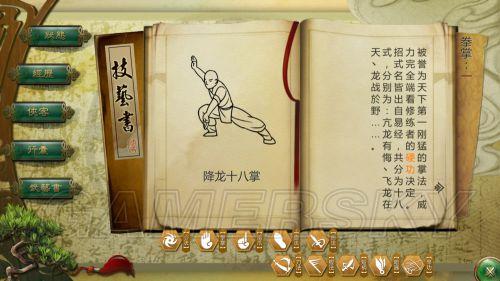 狀態
經歷
俠客
行囊
武藝書
技藝書
降龙十八掌
拳掌：一
被誉为天下第一刚猛的掌法，威
力完全端看修练者的硬功决定。
招式名皆出自易经，共分为十八
式，分别为：亢龙有悔、飞龙在
天、龙战於野……。
GAMERSKY